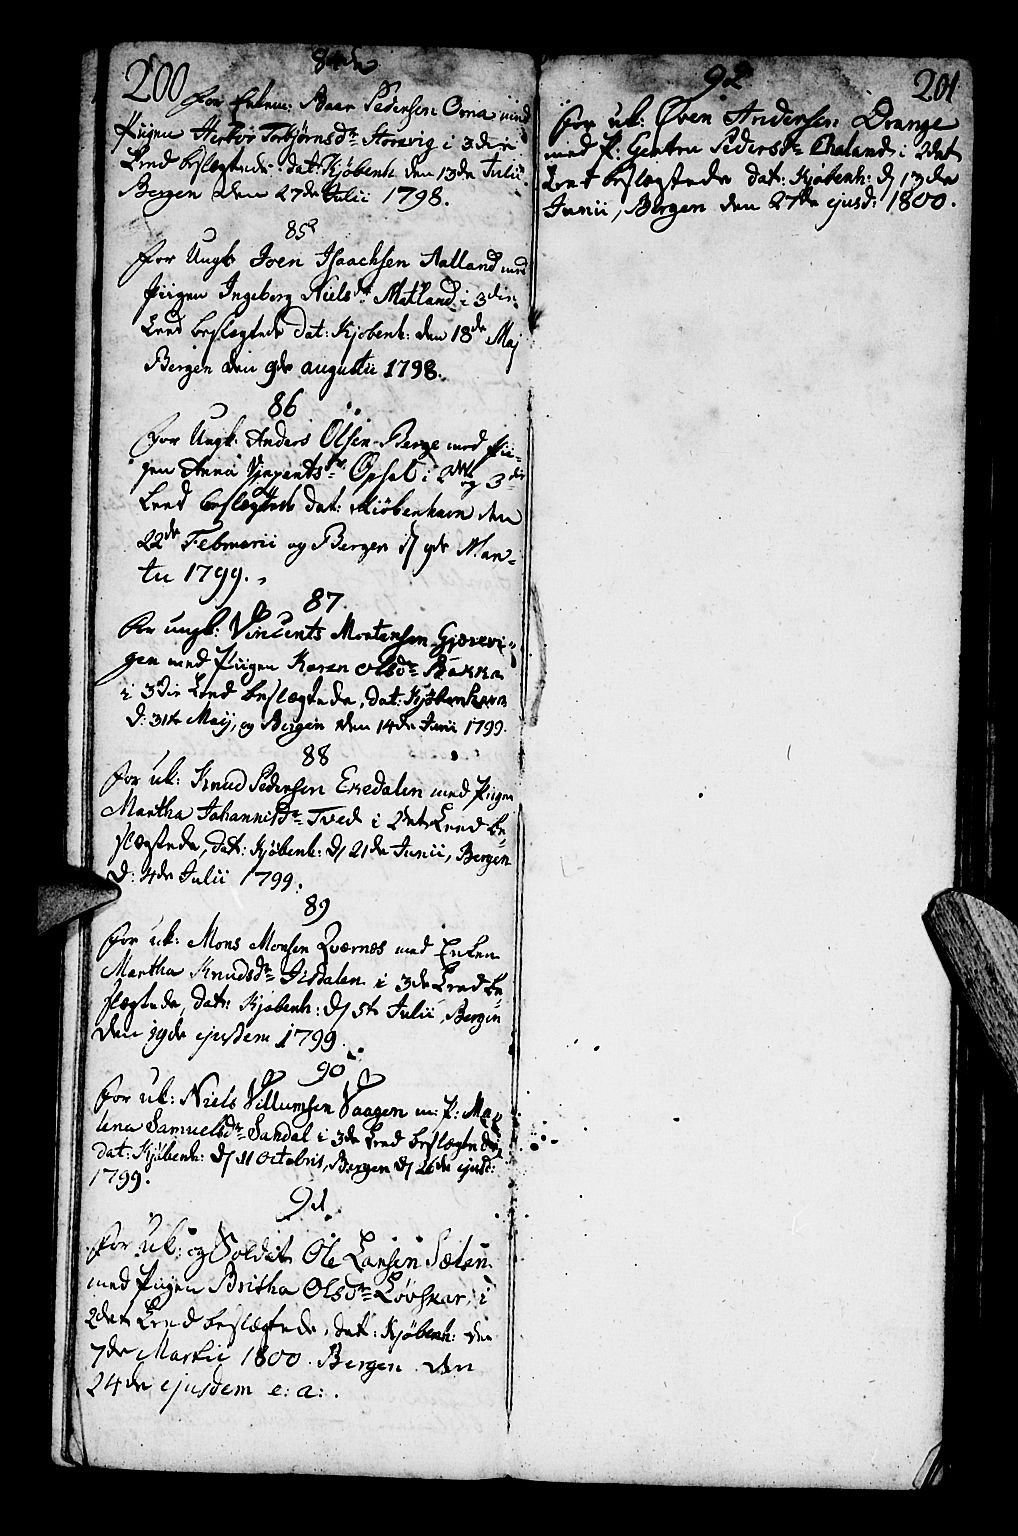 200
84de
For Enkem: Aaar Pedersen Oma med
Piigen Herborg Torbjørnsdr Storavig i 3die
Leed beslegtede dat: Kjøbenh. den 13de Julii
Bergen den 27de Julii 1798.
85
For Ungk: Iven Isaachsen Aalland med
Piigen Ingeborg Nielsdr Matland i 3die
Leed beslegtede dat: Kjøbenh: den 18de Maj
Bergen den 9de augustii 1798.
86
For Ungk: Anders Olsen Berge med Pii-
gen Anna Opsal i 2det og 3die
Leed beslegtede dat: Kiöbenhavn den
22de Februarii og Bergen d 9de Mar-
tii 1799.
87.
For ungk: Vincents Mortensen Gjærevi-
gen med Piigen Karen Olsdr Bakka
i 3die Leed beslægtede, dat: Kjøbenhavn
D: 31te Maij, og Bergen den 14de Junii 1799.
88
For uk: Knud Pedersen Eredalen med Piigen
Martha Johannisdr Tved i 2det Leed be-
slægtede, dat: Kjøbenh: d 21de Junii, Bergen
d: 4de Julii 1799.
89
For uk: Mons Monsen Qværnes med Enken
Martha Knudsdr Isdalen i 3de Leed be-
slægtede, dat: Kjøbenh: d 5te Julii, Bergen
den 19de ejusdem 1799.
90
For uk: Niels Villumsen Vaagen m: P: Ma-
lena Samuelsdr Sandal i 3de Leed beslægtede
dat: Kjøbenh: d 11 Octobris, Bergen d 26de ejusd:
1799.
91.
For Uk: og Soldat Ole Larsen Sæten
med Piigen Britha Olsdr Løvskar, i
2det Leed beslægtede, dat: Kjøbenh: den
7de Martii 1800. Bergen den
24de ejusdem e: a:.
201
92
For uk: Øven Andersen Drange
med P. Gjertru Pedersdr Røland i 2det
Leed beslægtede dat: Kjøbenh: d 13de
Junii, Bergen den 27de ejusd: 1800.